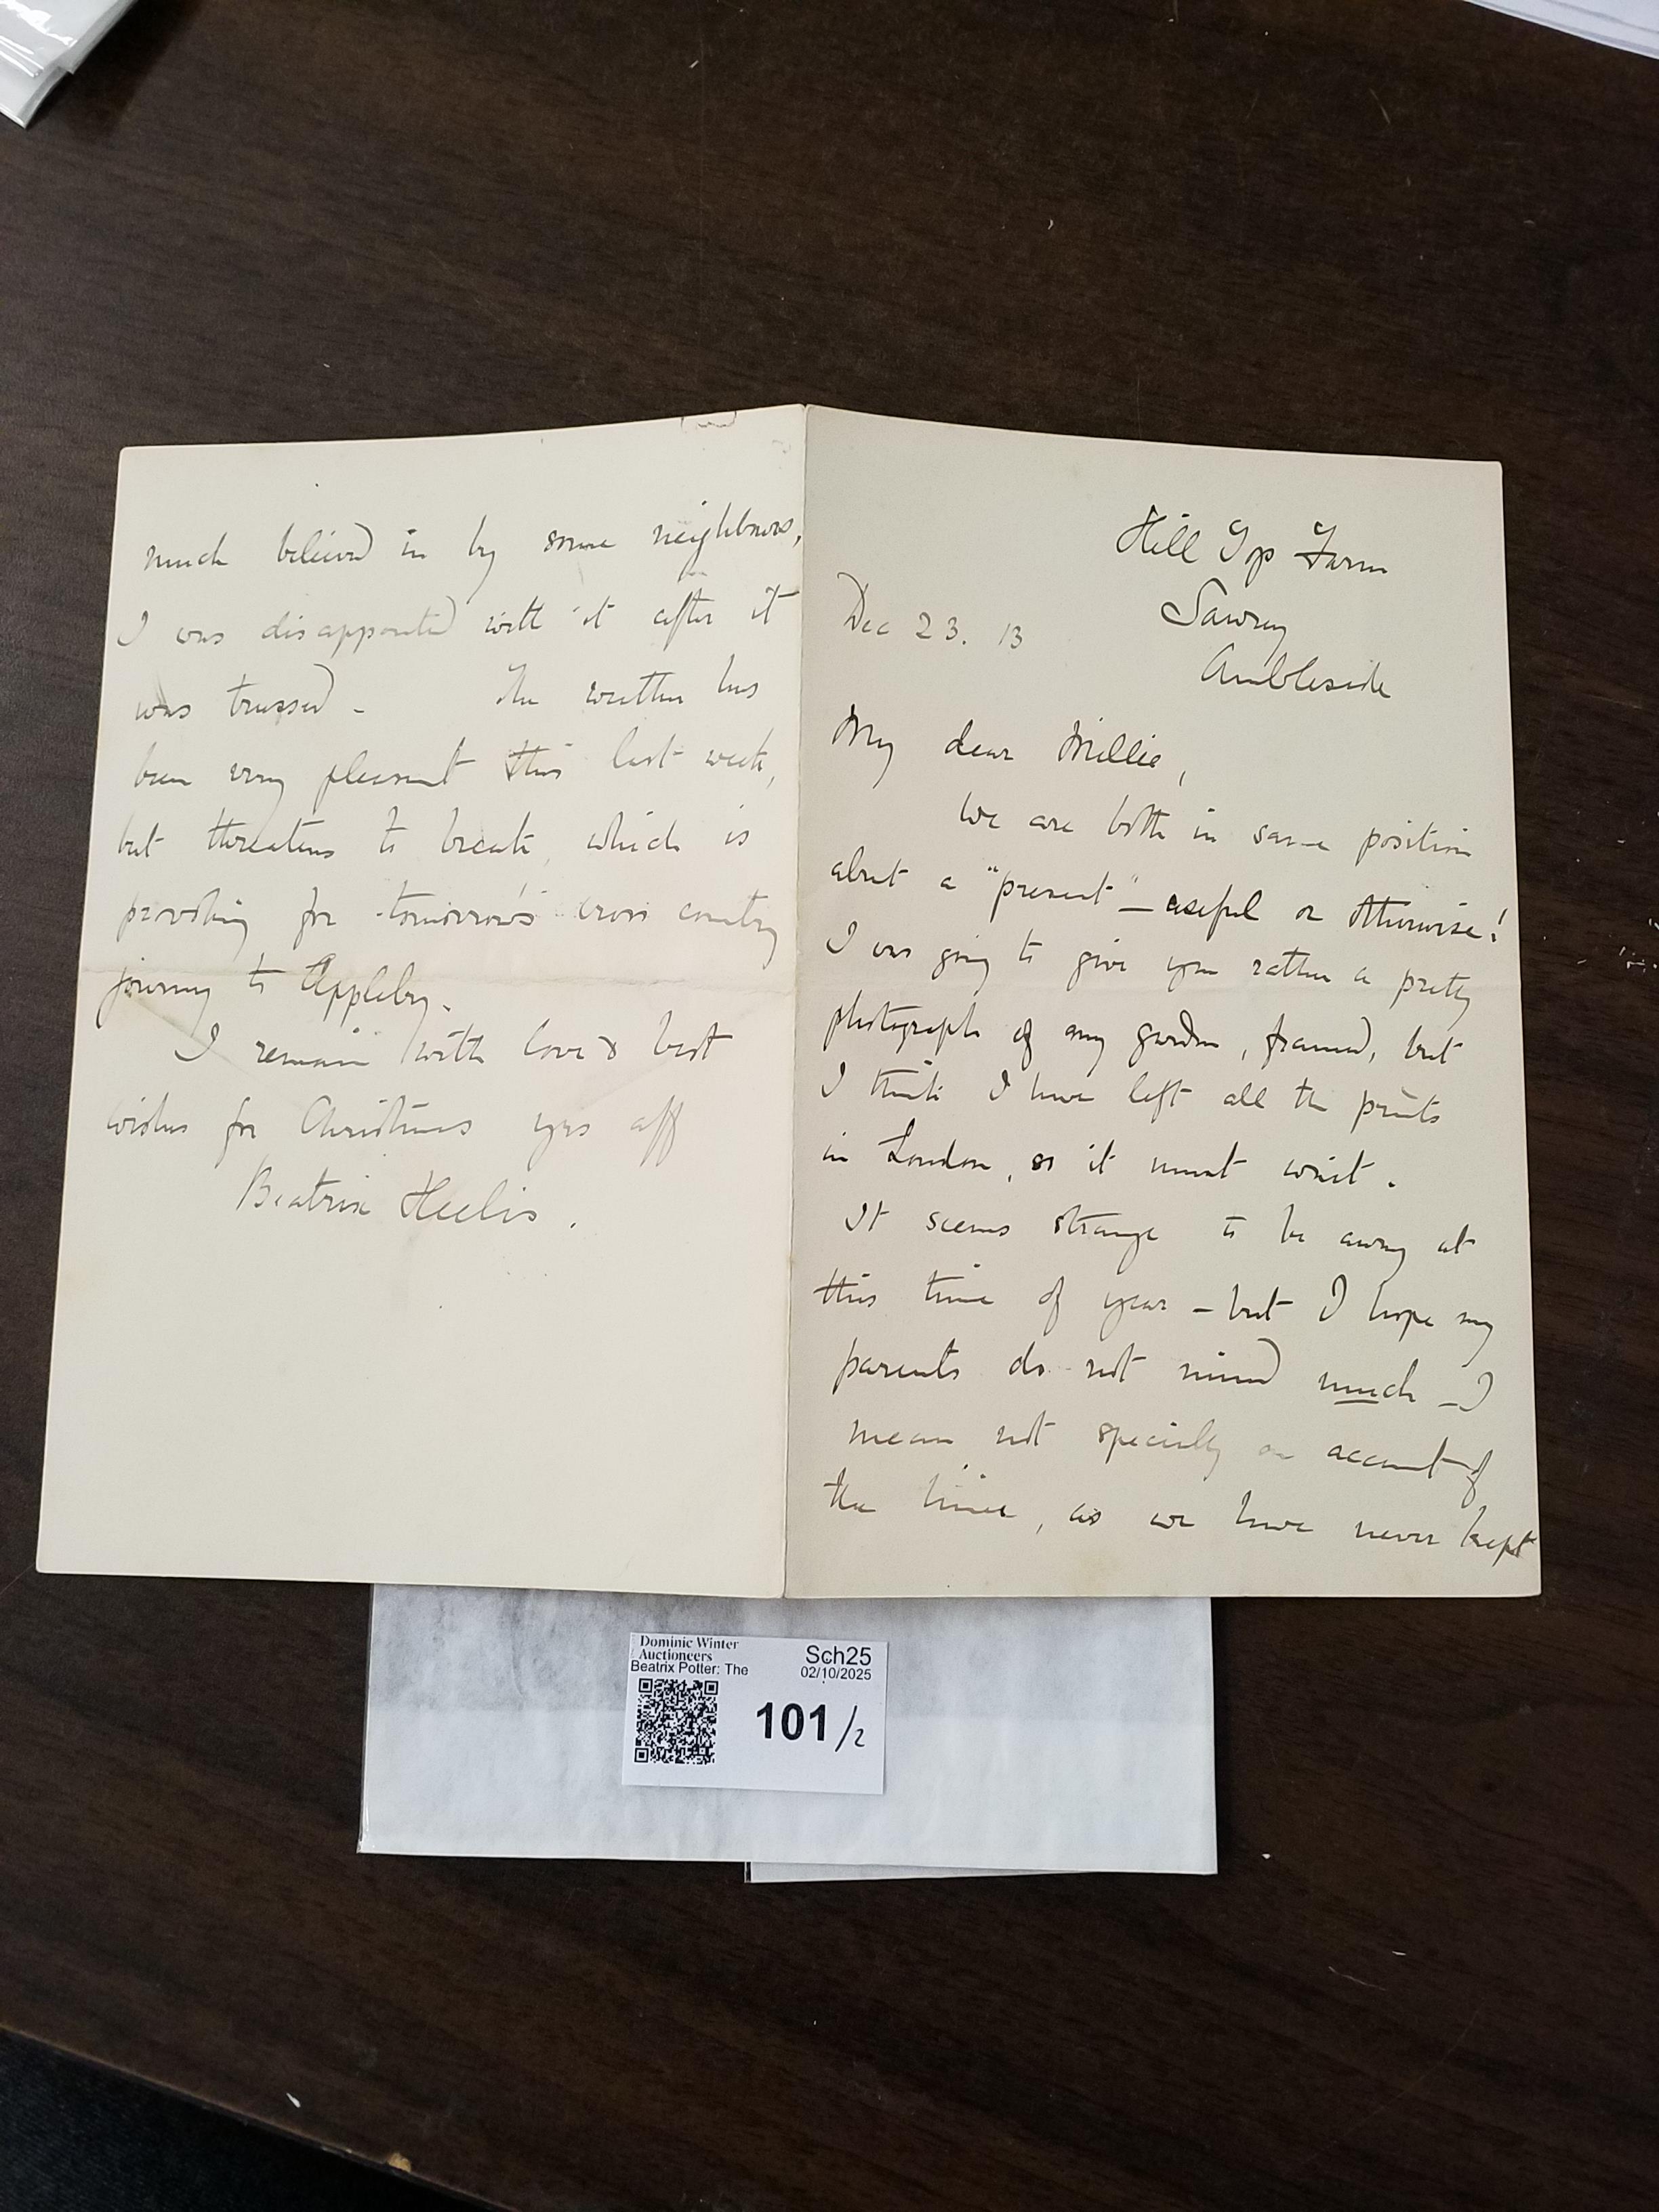 Hill Top Farm
Sawrey
Ambleside
Dec 23. 13
My dear Millie,
We are both in same position
about a "present" — useful or otherwise!
I was going to give you rather a pretty
photograph of my garden, framed, but
I think I have left all the prints
in London, so it must wait.
It seems strange to be away at
this time of year – but I hope my
parents do not mind much – I
mean not specially on account of
the time, as we have never kept
much believed in by some neighbours,
I was disappointed with it after it
was trussed – The weather has
been very pleasant this last week,
but threatens to break, which is
provoking for tomorrow's cross country
journey to Appleby.
I remain with love & best
wishes for Christmas yrs aff
Beatrix Heelis.
Dominic Winter
Auctioneers
Beatrix Potter: The
Sch25
02/10/2025
101/2